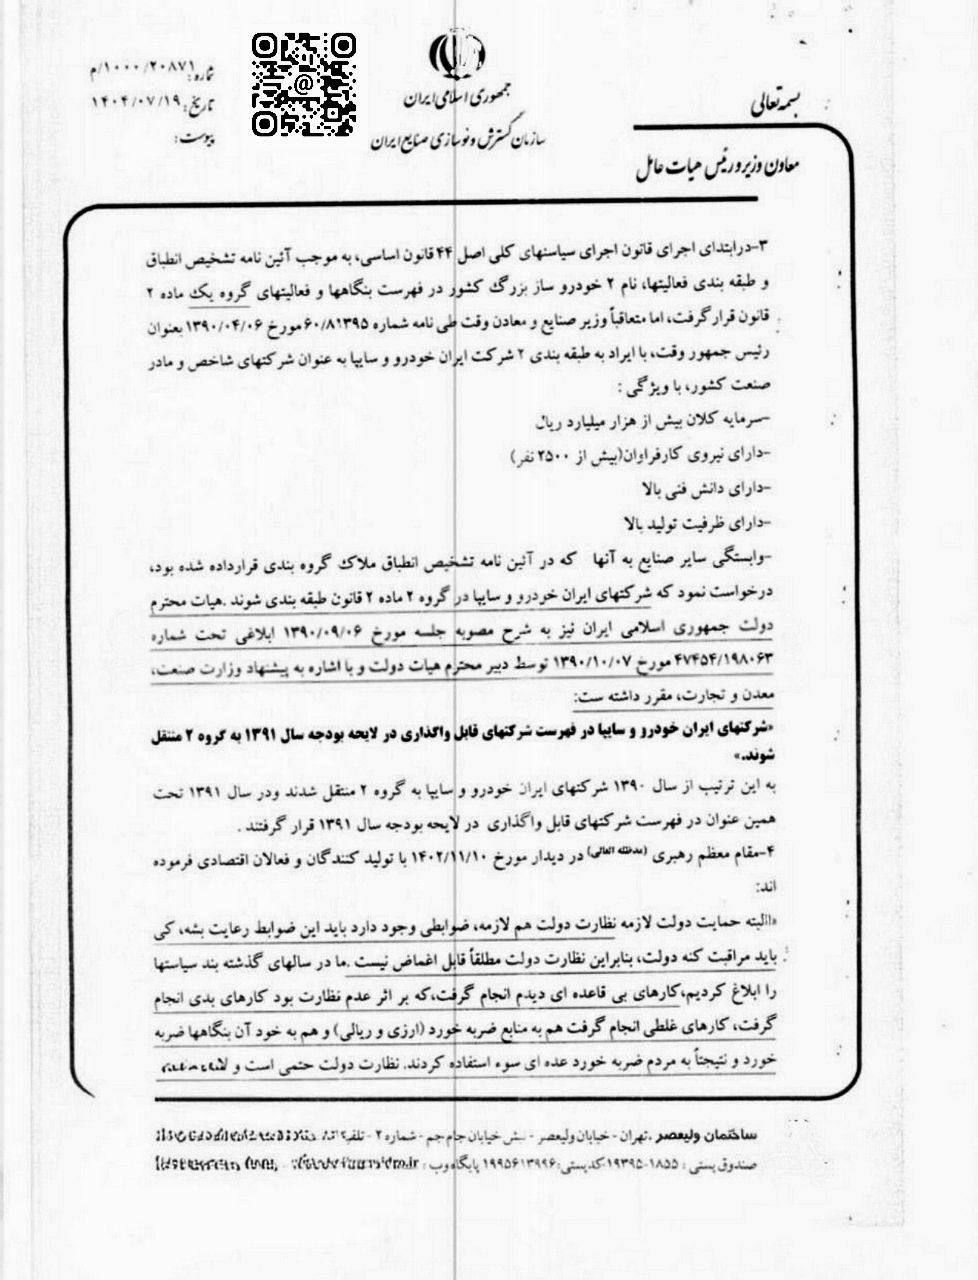 بسمه تعالی
جمهوری اسلامی ایران
سازمان گسترش و نوسازی صنایع ایران
معاون وزیر و رئیس هیات عامل
شماره: ۱۰۰۰/۲۰۸۷۱/م
تاریخ: ۱۴۰۴/۰۷/۱۹
پیوست:
۳-درابتدای اجرای قانون اجرای سیاستهای کلی اصل ۴۴ قانون اساسی، به موجب آئین نامه تشخیص انطباق
و طبقه بندی فعالیتها، نام ۲ خودرو ساز بزرگ کشور در فهرست بنگاهها و فعالیتهای گروه یک ماده ۲
قانون قرار گرفت، اما متعاقباً وزیر صنایع و معادن وقت طی نامه شماره ۶۰/۸۱۳۹۵ مورخ ۱۳۹۰/۰۴/۰۶ بعنوان
رئیس جمهور وقت، با ایراد به طبقه بندی ۲ شرکت ایران خودرو و سایپا به عنوان شرکتهای شاخص و مادر
صنعت کشور، با ویژگی :
-سرمایه کلان بیش از هزار میلیارد ریال
-دارای نیروی کارفراوان(بیش از ۲۵۰۰ نفر)
-دارای دانش فنی بالا
-دارای ظرفیت تولید بالا
-وابستگی سایر صنایع به آنها که در آئین نامه تشخیص انطباق ملاک گروه بندی قرارداده شده بود،
درخواست نمود که شرکتهای ایران خودرو و سایپا در گروه ۲ ماده ۲ قانون طبقه بندی شوند .هیات محترم
دولت جمهوری اسلامی ایران نیز به شرح مصوبه جلسه مورخ ۱۳۹۰/۰۹/۰۶ ابلاغی تحت شماره
۴۷۴۵۴/۱۹۸۰۶۳ مورخ ۱۳۹۰/۱۰/۰۷ توسط دبیر محترم هیات دولت و با اشاره به پیشنهاد وزارت صنعت،
معدن و تجارت، مقرر داشته ست:
«شرکتهای ایران خودرو و سایپا در فهرست شرکتهای قابل واگذاری در لایحه بودجه سال ۱۳۹۱ به گروه ۲ منتقل
شوند.»
به این ترتیب از سال ۱۳۹۰ شرکتهای ایران خودرو و سایپا به گروه ۲ منتقل شدند ودر سال ۱۳۹۱ تحت
همین عنوان در فهرست شرکتهای قابل واگذاری در لایحه بودجه سال ۱۳۹۱ قرار گرفتند .
۴-مقام معظم رهبری (مدظله العالی) در دیدار مورخ ۱۴۰۲/۱۱/۱۰ با تولید کنندگان و فعالان اقتصادی فرموده
اند:
«البته حمایت دولت لازمه نظارت دولت هم لازمه، ضوابطی وجود دارد باید این ضوابط رعایت بشه، کی
باید مراقبت کنه دولت، بنابراین نظارت دولت مطلقاً قابل اغماض نیست .ما در سالهای گذشته بند سیاستها
را ابلاغ کردیم،کارهای بی قاعده ای دیدم انجام گرفت،که بر اثر عدم نظارت بود کارهای بدی انجام
گرفت، کارهای غلطی انجام گرفت هم به منابع ضربه خورد (ارزی و ریالی) و هم به خود آن بنگاهها ضربه
خورد و نتیجتاً به مردم ضربه خورد عده ای سوء استفاده کردند. نظارت دولت حتمی است و
ساختمان ولیعصر .تهران - خیابان ولیعصر - نبش خیابان جام جم - شماره ۲ -
صندوق پستی : ۱۸۵۵-۱۹۳۹۵ کدپستی: ۱۹۹۵۶۱۳۹۹۶ پایگاه وب :